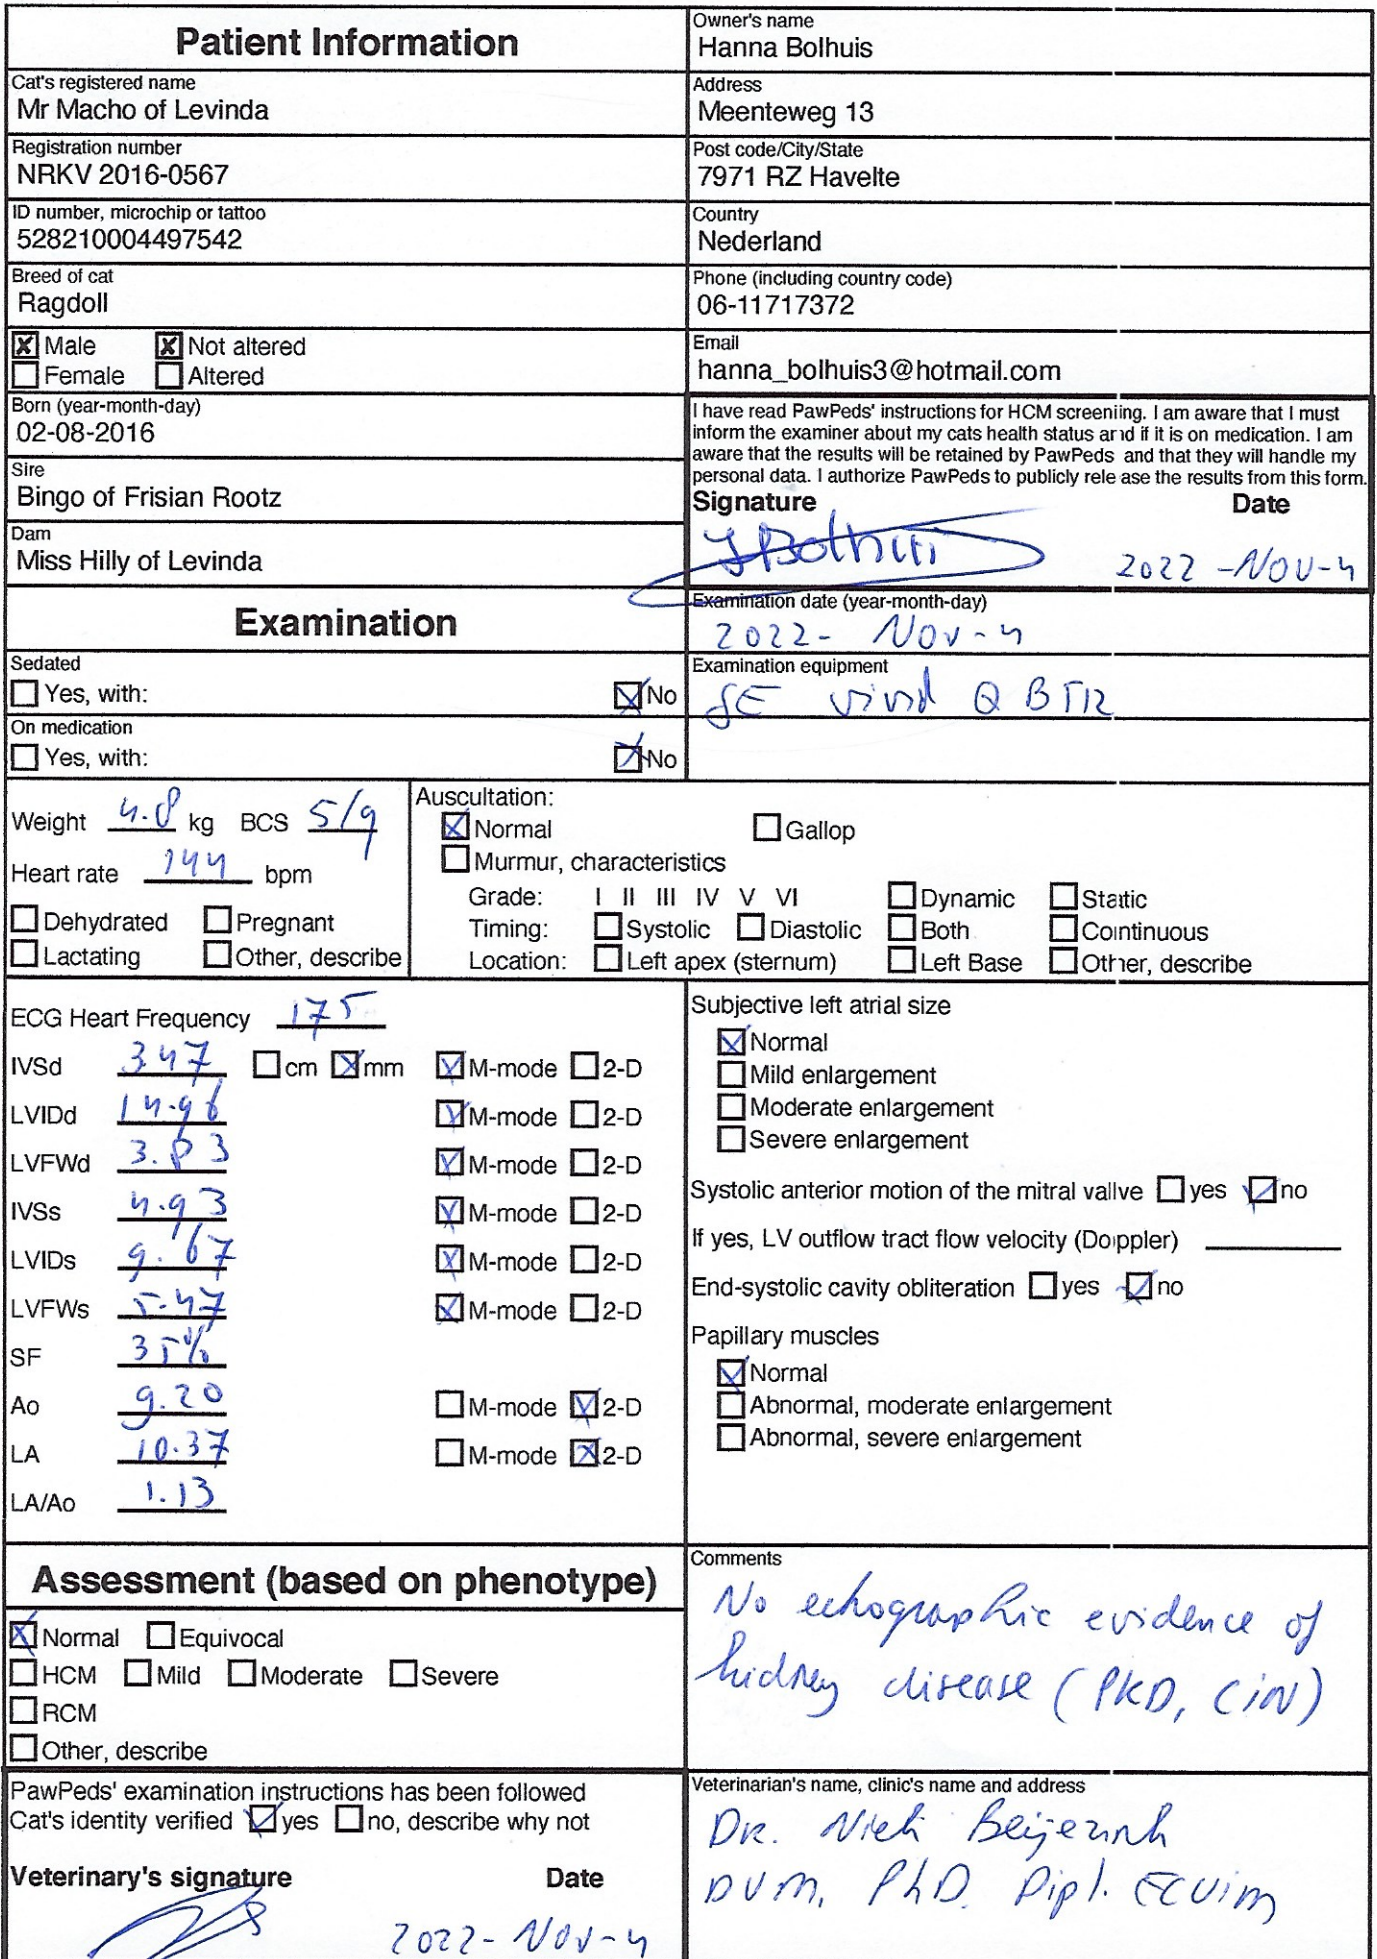 Patient Information
Owner's name
Hanna Bolhuis
Cat's registered name
Mr Macho of Levinda
Address
Meenteweg 13
Registration number
NRKV 2016-0567
Post code/City/State
7971 RZ Havelte
ID number, microchip or tattoo
528210004497542
Country
Nederland
Breed of cat
Ragdoll
Phone (including country code)
06-11717372
Male Not altered
Female Altered
Email
hanna_bolhuis3@hotmail.com
Born (year-month-day)
02-08-2016
I have read PawPeds' instructions for HCM screening. I am aware that I must
inform the examiner about my cats health status and if it is on medication. I am
aware that the results will be retained by PawPeds and that they will handle my
personal data. I authorize PawPeds to publicly release the results from this form.
Sire
Bingo of Frisian Rootz
Signature Date
Bolhuis 2022-Nov-4
Dam
Miss Hilly of Levinda
Examination
Examination date (year-month-day)
2022-Nov-4
Sedated
Yes, with: No
Examination equipment
GE vivid Q BT12
On medication
Yes, with: No
Weight 4.8 kg BCS 5/9
Heart rate 144 bpm
Dehydrated Pregnant
Lactating Other, describe
Auscultation:
Normal Gallop
Murmur, characteristics
Grade: I II III IV V VI Dynamic Static
Timing: Systolic Diastolic Both Continuous
Location: Left apex (sternum) Left Base Other, describe
ECG Heart Frequency 175
IVSd 3.47 cm mm M-mode 2-D
LVIDd 14.96 M-mode 2-D
LVFWd 3.83 M-mode 2-D
IVSs 4.93 M-mode 2-D
LVIDs 9.67 M-mode 2-D
LVFWs 5.47 M-mode 2-D
SF 35%
Ao 9.20 M-mode 2-D
LA 10.37 M-mode 2-D
LA/Ao 1.13
Subjective left atrial size
Normal
Mild enlargement
Moderate enlargement
Severe enlargement
Systolic anterior motion of the mitral valve yes no
If yes, LV outflow tract flow velocity (Doppler)
End-systolic cavity obliteration yes no
Papillary muscles
Normal
Abnormal, moderate enlargement
Abnormal, severe enlargement
Assessment (based on phenotype)
Normal Equivocal
HCM Mild Moderate Severe
RCM
Other, describe
Comments
No echographic evidence of
kidney disease (PKD, CIN)
PawPeds' examination instructions has been followed
Cat's identity verified yes no, describe why not
Veterinary's signature Date
2022-Nov-4
Veterinarian's name, clinic's name and address
Dr. Niek Beijerink
DVM, PhD. Dipl. ECVIM